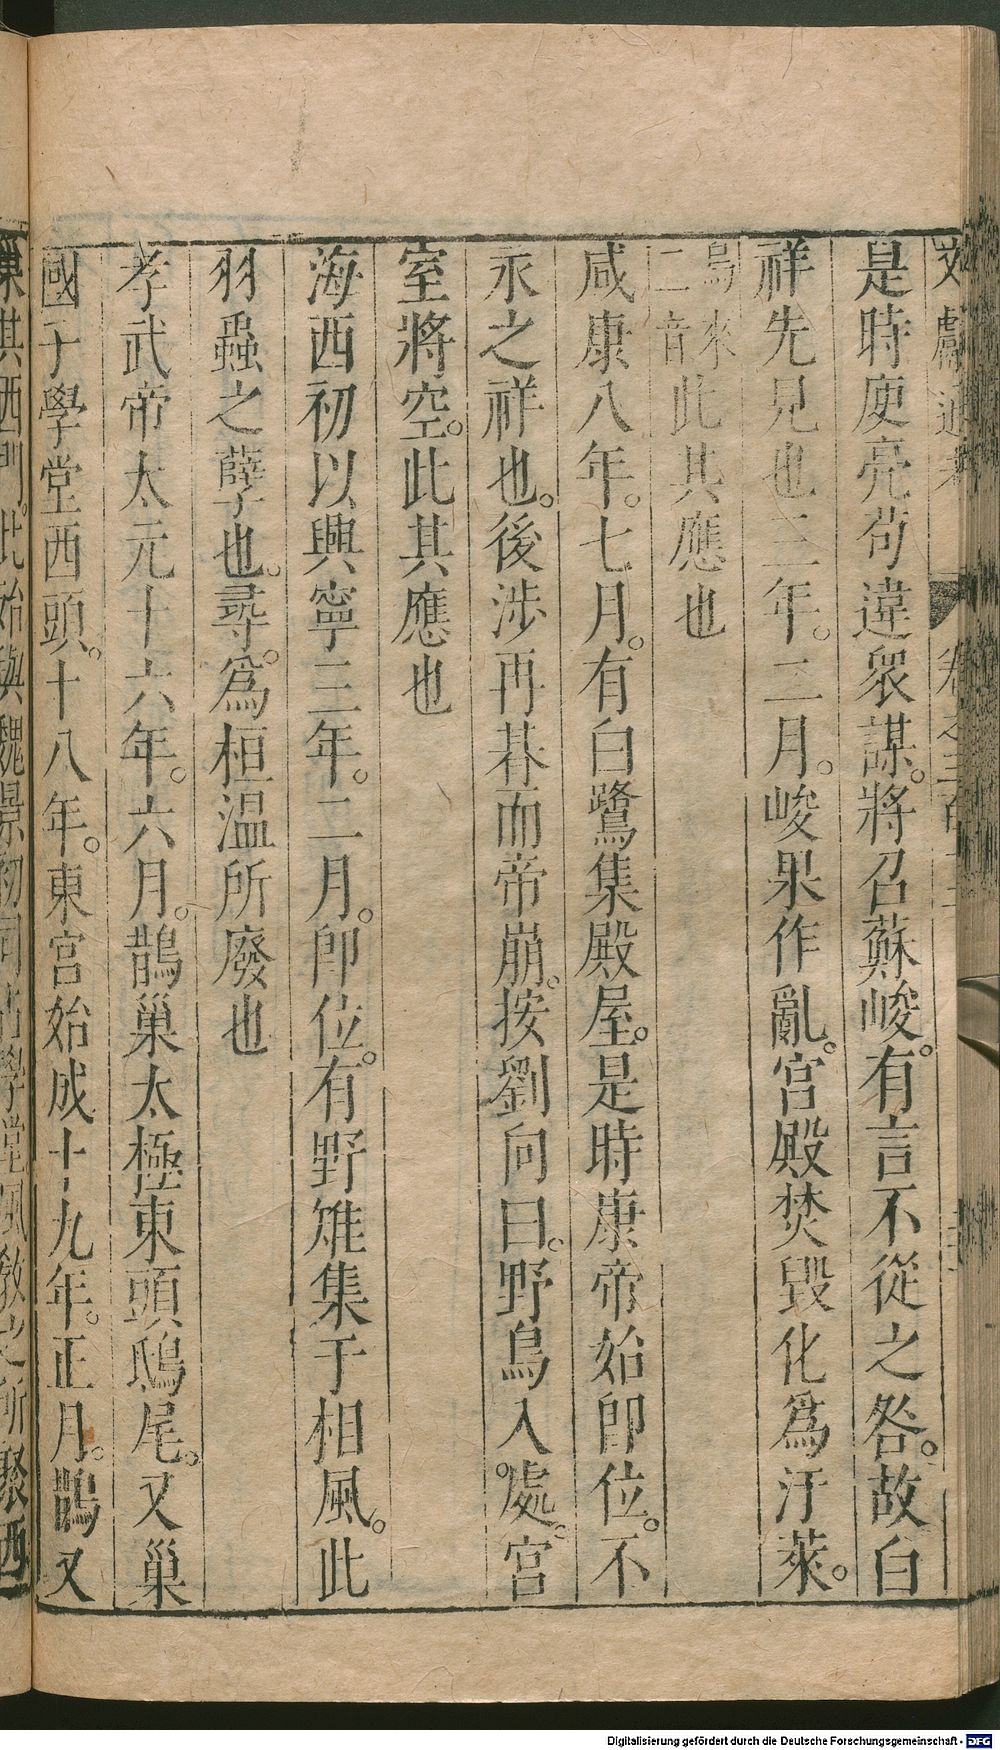 文獻通考 卷之三百十二
是時庾亮苟違衆謀。將召蘇峻。有言不從之咎。故白
祥先見也三年。二月。峻果作亂。宮殿焚毀化爲汙萊。
烏來二音此其應也
咸康八年。七月。有白鷺集殿屋。是時康帝始卽位。不
永之祥也。後涉再朞而帝崩。按劉向曰。野鳥入。處。宮
室將空。此其應也
海西初以興寧三年。二月。卽位。有野雉集于相風。此
羽蟲之孽也。尋。爲桓溫所廢也
孝武帝太元十六年。六月。鵲巢太極東頭鴟尾。又巢
國子學堂西頭。十八年。東宮始成十九年。正月。鵲又
巢其西門。此始與魏景初同占學堂風敎之所聚西
Digitalisierung gefördert durch die Deutsche Forschungsgemeinschaft - DFG